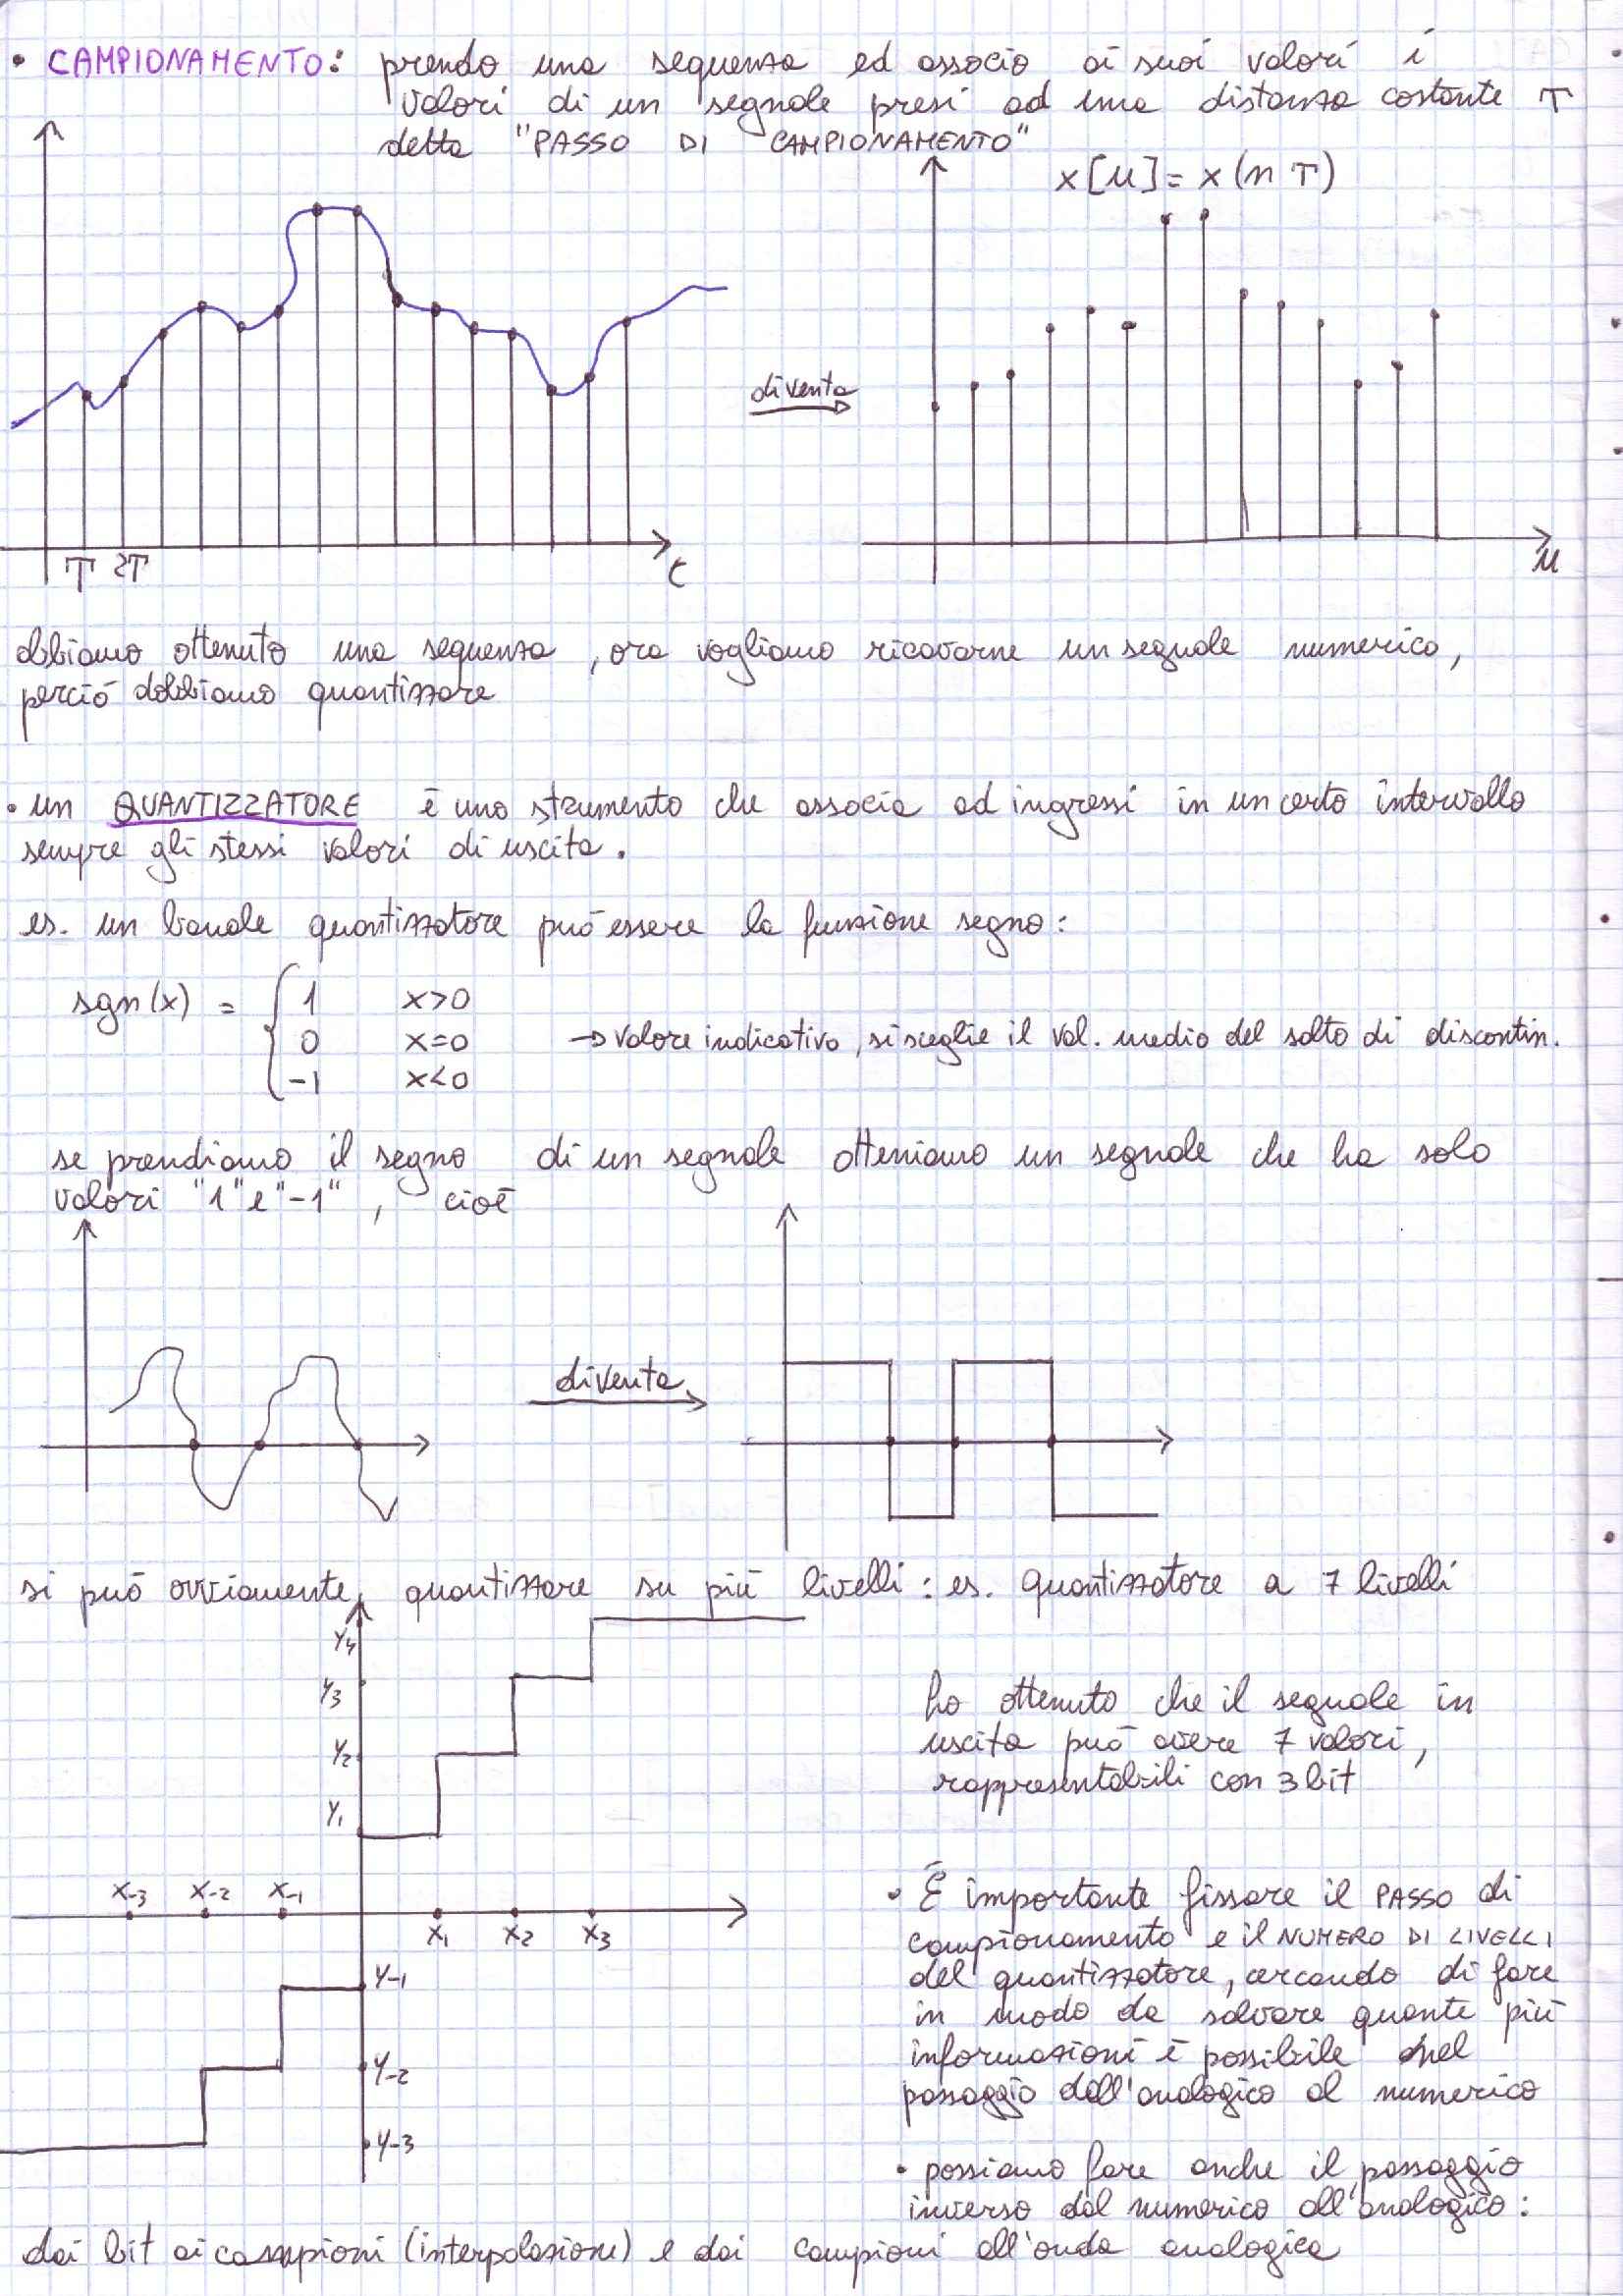 • CAMPIONAMENTO: prendo una sequenza ed associo ai suoi valori i
valori di un segnale presi ad una distanza costante T
detta "PASSO DI CAMPIONAMENTO"
x[n] = x(nT)
diventa
T 2T
t
n
abbiamo ottenuto una sequenza, ora vogliamo ricavarne un segnale numerico,
perciò dobbiamo quantizzare
• un QUANTIZZATORE è uno strumento che associa ad ingressi in un certo intervallo
sempre gli stessi valori di uscita.
es. un banale quantizzatore può essere la funzione segno:
sgn(x) = { 1 x>0
0 x=0 → valore indicativo, si sceglie il val. medio del salto di discontin.
-1 x<0
se prendiamo il segno di un segnale otteniamo un segnale che ha solo
valori "1" e "-1", cioè
diventa
si può ovviamente quantizzare su più livelli: es. quantizzatore a 7 livelli
y4
y3
y2
y1
x-3 x-2 x-1
x1 x2 x3
y-1
y-2
y-3
ho ottenuto che il segnale in
uscita può avere 7 valori,
rappresentabili con 3 bit
• É importante fissare il PASSO di
campionamento e il NUMERO DI LIVELLI
del quantizzatore, cercando di fare
in modo da salvare quante più
informazioni è possibile nel
passaggio dall'analogico al numerico
• possiamo fare anche il passaggio
inverso dal numerico all'analogico:
dai bit ai campioni (interpolazione) e dai campioni all'onda analogica